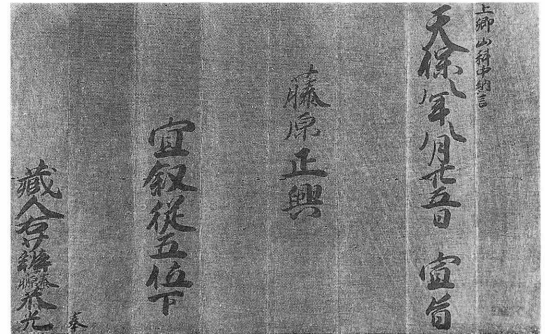 上卿山科中納言
天保八年八月廿五日 宣旨
藤原正興
宣叙從五位下
藏人右少辨藤原恭光
奉